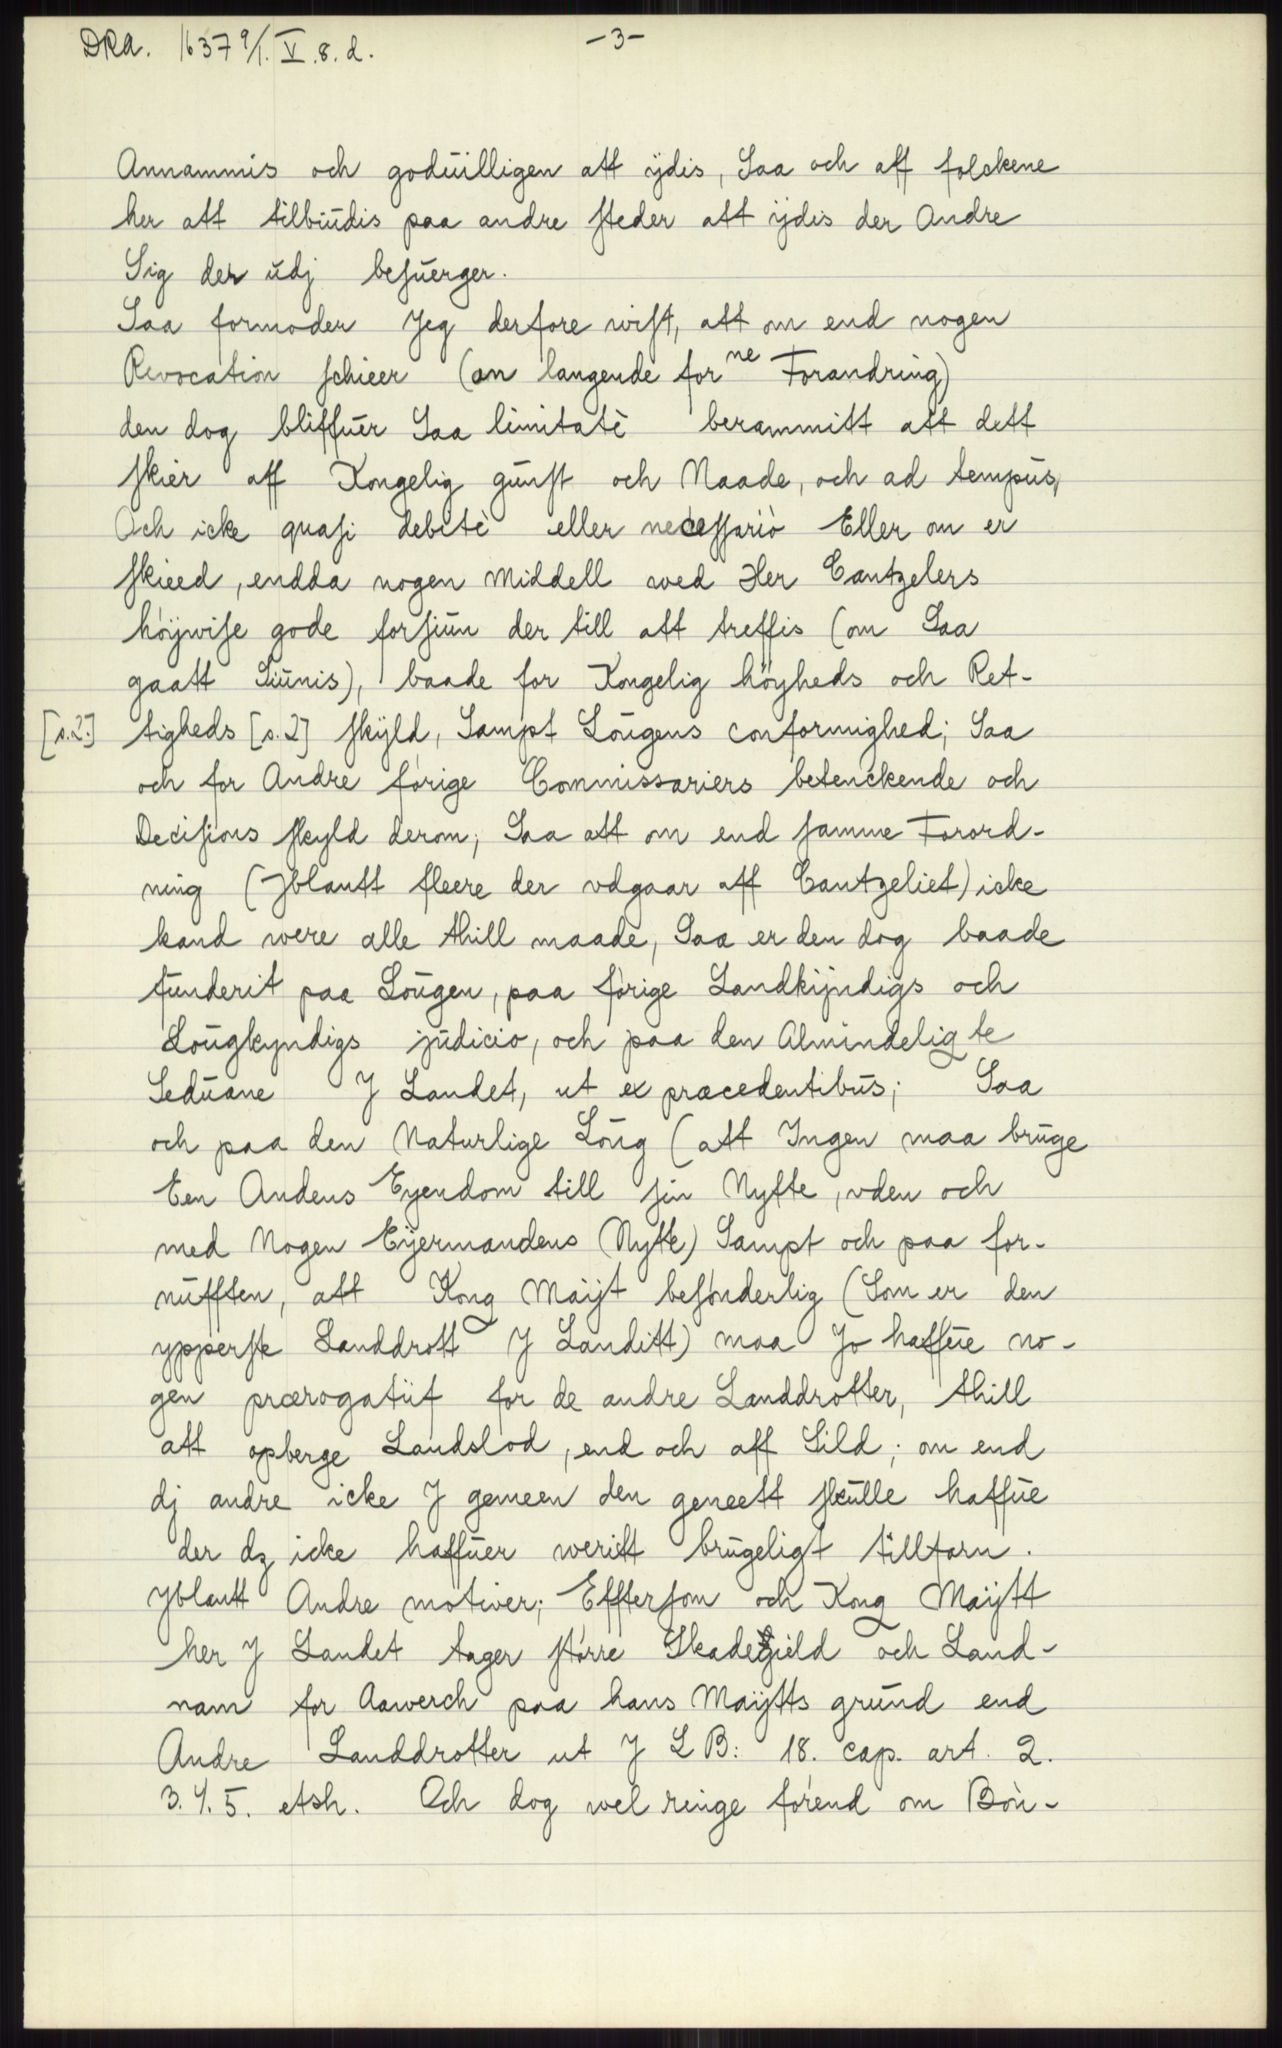 DRA. 1637 9/1. V.8.d.
-3-
Annammis och goduilligen att ÿdis, Saa och aff folckene
her att tilbiudis paa andre steder att ÿdis der Andre
Sig der udj besuerger.
Saa formoder Jeg derfore wist, att om end nogen
Revocation schieer (an langende forne Forandring)
den dog bliffuer Saa limitatè berammitt att dett
skier aff Kongelig gunst och Naade, och ad tempus,
Och icke quasi debitè eller necessariò Eller om er
skieed, endda nogen Middell wed Her Cantzelers
höÿwise gode forsiun der till att treffis (om Saa
gaatt Siunis), baade for Kongelig höÿheds och Ret-
[s.2.] tigheds [s.2] skÿld, Sampt Lougens conformighed; Saa
och for Andre förige Commissariers betenckende och
Decisions skyld derom; Saa att om end samme Forord-
ning (Jblantt fleere der vdgaar aff Cantzeliet) icke
kand were alle thill maade, Saa er den dog baade
funderit paa Lougen, paa förige Landkÿndigs och
Lougkyndigs judicio, och paa den Almindeligte
Seduane J Landet, ut ex præcedentibus; Saa
och paa den Naturlige Loug (att Ingen maa bruge
Een Andens Eyendom till sin Nytte, vden och
med Nogen Eÿermandens (Nytte) Sampt och paa for-
nufften, att Kong Maÿt besönderlig (Som er den
ypperste Landdrott J Landitt) maa Jo haffue no-
gen prærogatiif for de andre Landdrotter, thill
att opberge Landslod, end och aff Sild; om end
dj andre icke J gemeen den geneett skulle haffue
der dz icke haffuer weritt brugeligt tillforn.
Jblantt Andre motiver; Effterson och Kong Maÿtt
her J Landet tager större Skadegield och Land-
nam for Aawerch paa hans Maÿtts grund end
Andre Landdrotter ut J L B: 18. cap. art. 2.
3. 4. 5. etsh. Och dog wel ringe förend om Bön-